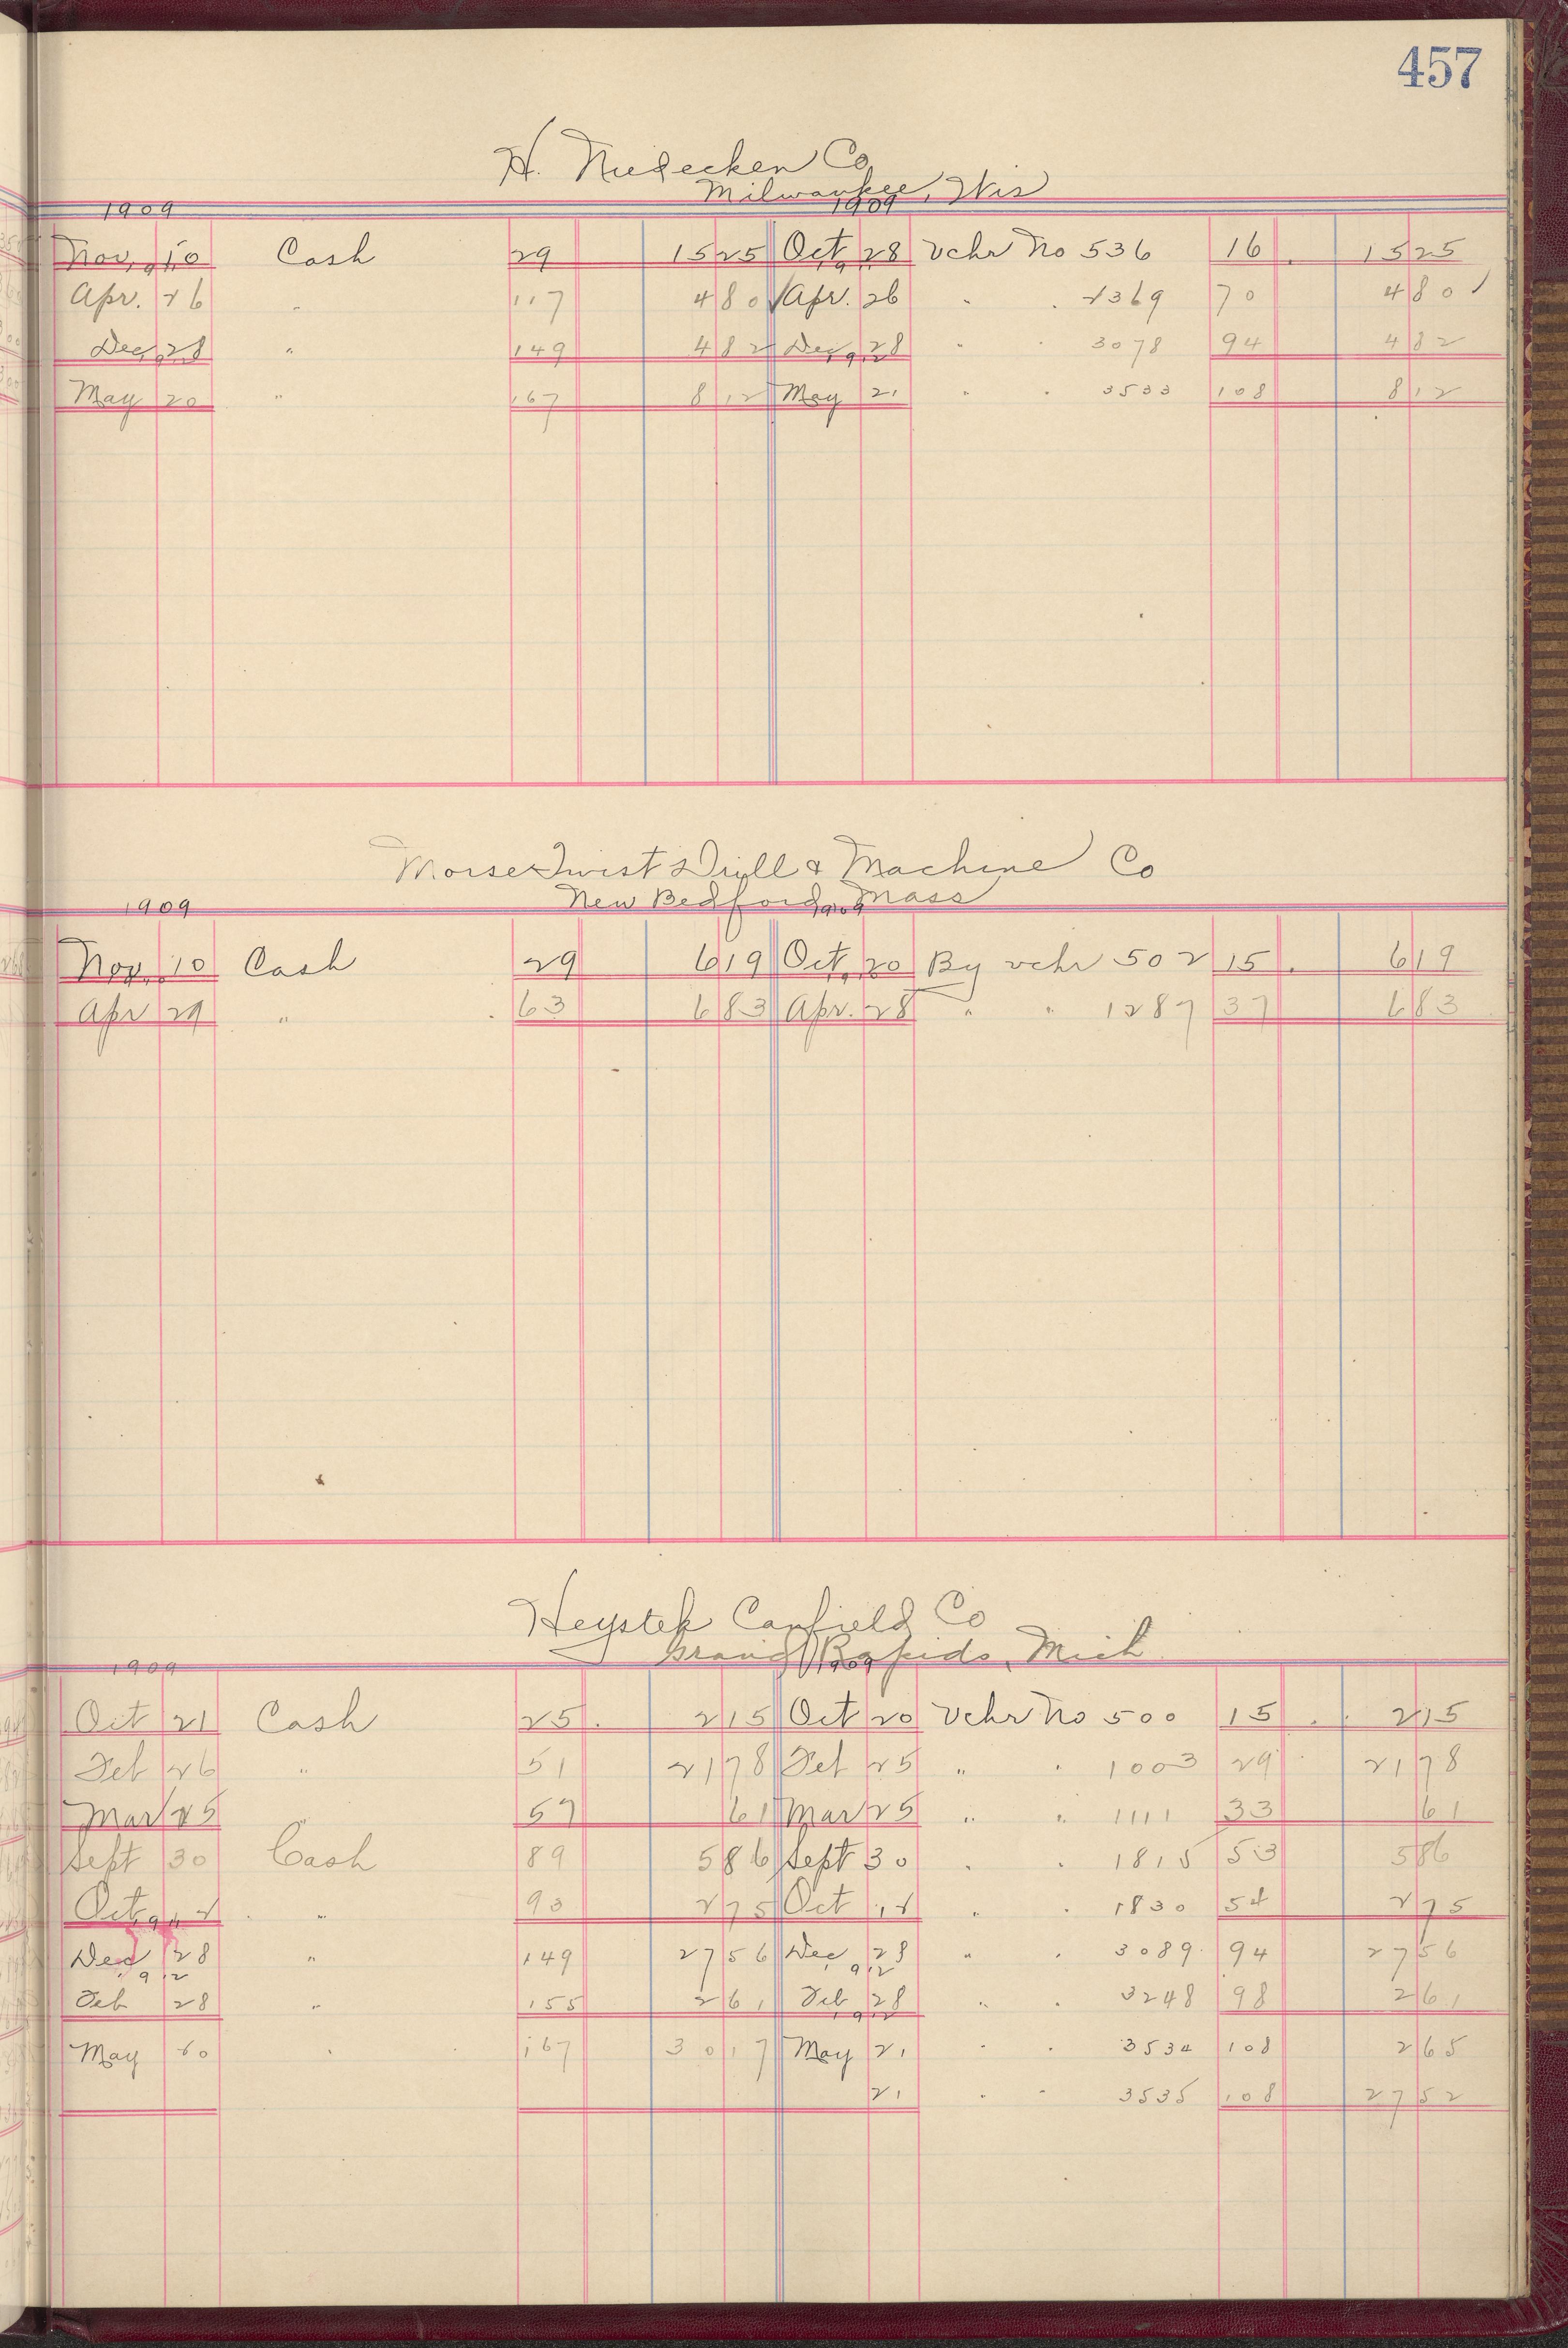 457
H. Niedecken Co
Milwaukee, Wis
1909 1909
Nov. 10 Cash 29 15 25 Oct 28 Vchr No 536 16 15 25
1911 1911
Apr. 26 " 117 4 80 ✓ Apr. 26 " " 2369 70 4 80 ✓
Dec 28 " 149 4 82 Dec 28 " " 3078 94 4 82
1912 1912
May 20 " 167 8 12 May 21 " " 3533 108 8 12
Morse Twist Drill & Machine Co
New Bedford, Mass
1909 1909
Nov. 10 Cash 29 6 19 Oct. 20 By vchr 502 15 6 19
Apr 29 " 63 6 83 Apr. 28 " " 1287 37 6 83
Heystek Canfield Co
Grand Rapids, Mich
1909 1909
Oct 21 Cash 25 2 15 Oct 20 Vchr No 500 15 2 15
Feb 26 " 51 21 78 Feb 25 " " 1003 29 21 78
Mar 25 " 57 61 Mar 25 " " 1111 33 61
Sept 30 Cash 89 5 86 Sept 30 " " 1815 53 5 86
Oct " 93 2 75 Oct " " 1830 54 2 75
1911
Dec 28 " 149 27 56 Dec 28 " " 3089 94 27 56
1912 1912
Feb 28 " 155 2 61 Feb 28 " " 3248 98 2 61
1912
May 20 " 167 30 17 May 21 " " 3534 108 2 65
21 " " 3535 108 27 52